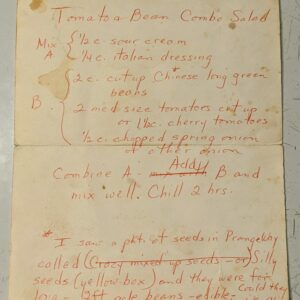 Tomato & Bean Combo Salad
Mix A { ½ c. sour cream
¼ c. italian dressing
B. { 2 c. cut up Chinese* long green
beans
2 med size tomatoes cut up
or 1½ c. cherry tomatoes
½ c. chopped spring onion
or other onion
Combine A - Add B and
mix well. Chill 2 hrs.
* I saw a pkt. of seeds in
called (Crazy mixed up seeds - or) Silly
seeds (yellow box) and they were for
long - 12 ft. pole beans - edible. Could they